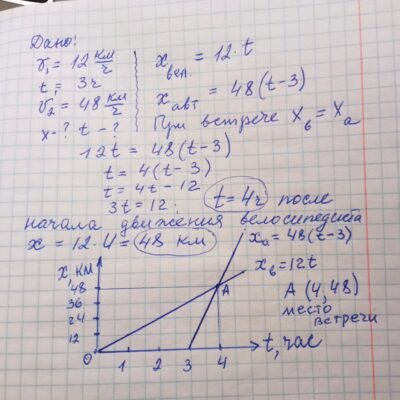 Дано:
v₁ = 12 км/ч
t₁ = 3ч
v₂ = 48 км/ч
x - ? t - ?
x вел. = 12·t
x авт = 48(t-3)
При встрече x_в = x_а
12t = 48(t-3)
t = 4(t-3)
t = 4t - 12
3t = 12
t = 4ч после
начала движения велосипедиста
x = 12·4 = 48 км
x_а = 48(t-3)
x_в = 12t
A (4,48)
место
встречи
x, км
48
36
24
12
0
A
1 2 3 4
t, час